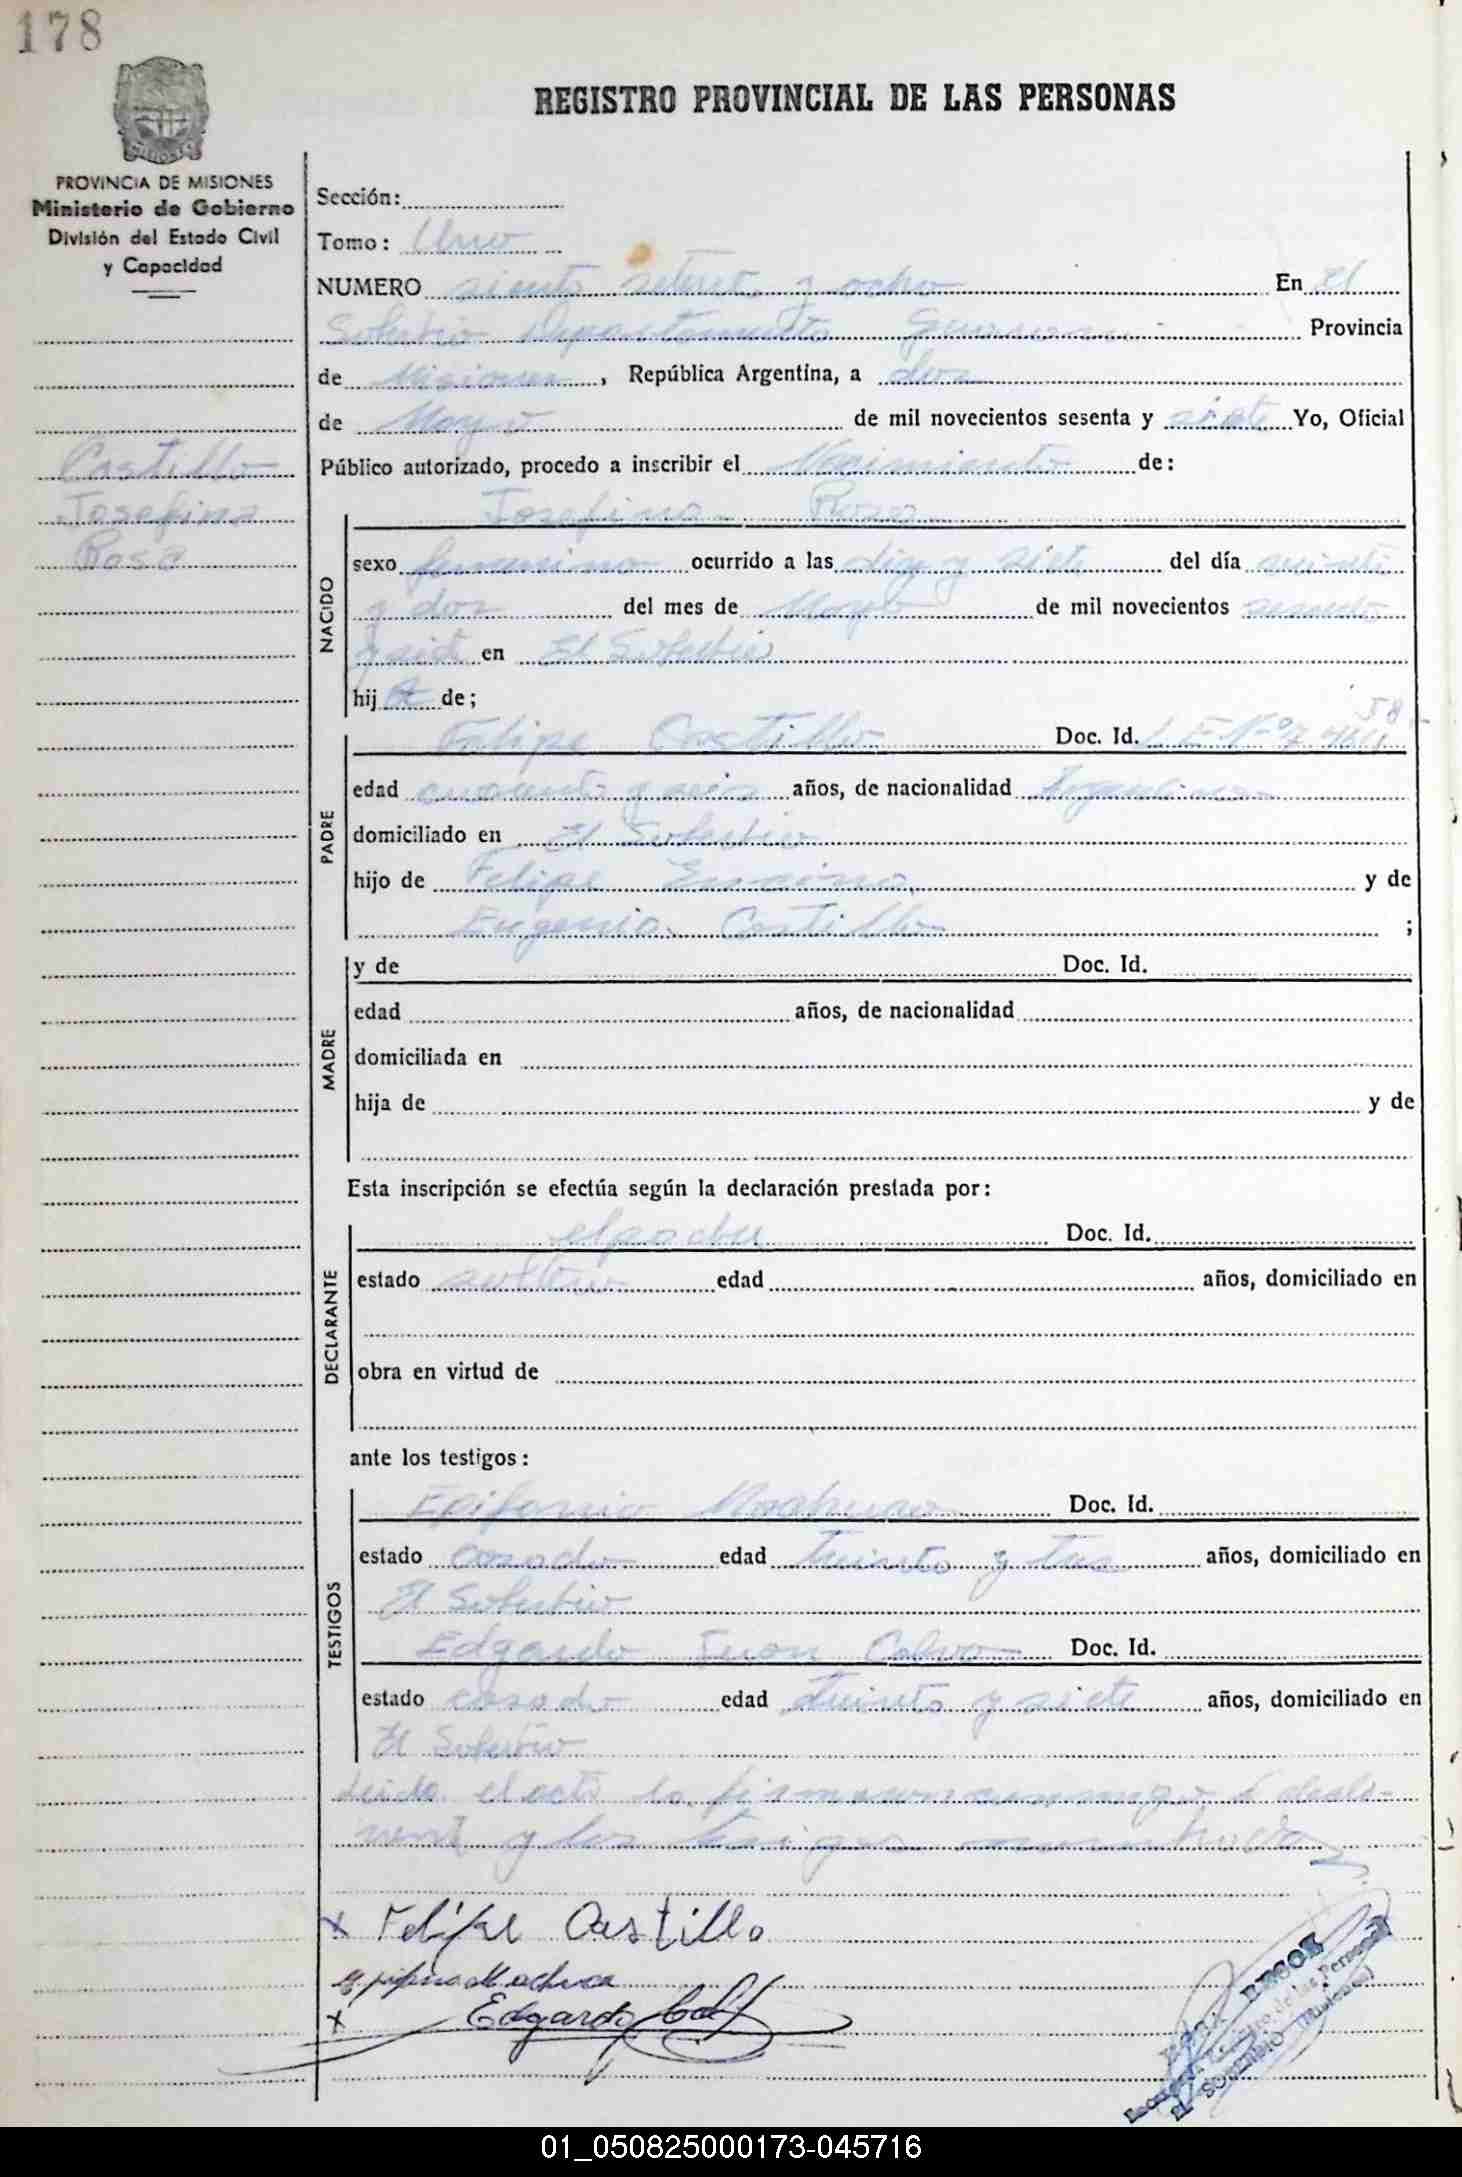 178
REGISTRO PROVINCIAL DE LAS PERSONAS
MISIONES
PROVINCIA DE MISIONES
Ministerio de Gobierno
División del Estado Civil
y Capacidad
Castillo
Josefina
Rosa
Sección:
Tomo: Uno
NUMERO siento setenta y ocho En El
Soberbio Departamento Guarani Provincia
de Misiones, República Argentina, a dos
de Mayo de mil novecientos sesenta y siete Yo, Oficial
Público autorizado, procedo a inscribir el Nacimiento de:
Josefina Rosa
NACIDO
sexo femenino ocurrido a las diez y siete del día veinti
y dos del mes de Mayo de mil novecientos sesenta
y siete en El Soberbio
hij a de;
PADRE
Felipe Castillo Doc. Id. L E Nº 7.464 58
edad cuarenta y seis años, de nacionalidad Argentina
domiciliado en El Soberbio
hijo de Felipe y de
Eugenia Castillo ;
MADRE
y de Doc. Id.
edad años, de nacionalidad
domiciliada en
hija de y de
Esta inscripción se efectúa según la declaración prestada por:
DECLARANTE
el padre Doc. Id.
estado soltero edad años, domiciliado en
obra en virtud de
ante los testigos:
TESTIGOS
Epifanio Machuca Doc. Id.
estado casado edad treinta y tres años, domiciliado en
El Soberbio
Edgardo Juan Calvo Doc. Id.
estado casado edad treinta y siete años, domiciliado en
El Soberbio
Leida el acta la firman conmigo el decla-
rent y los testigos
x Felipe Castillo
Epifanio Machuca
x Edgardo
EL SOBERBIO (Misiones)
01_050825000173-045716